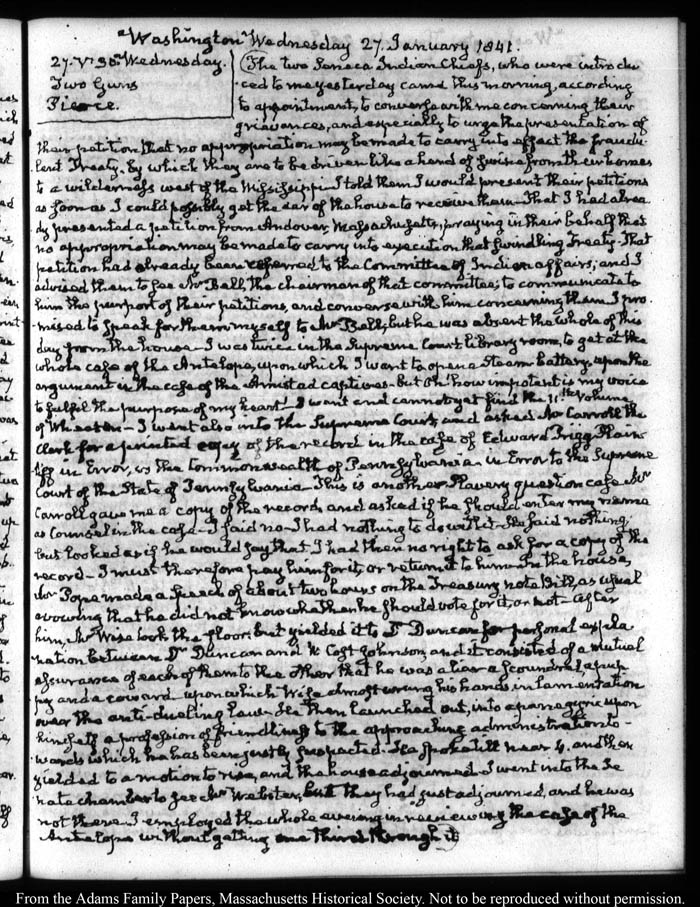 "Washington" Wednesday 27. January 1841.
27. V. 30. Wednesday.
Two Guns
Pierce.
The two Seneca Indian Chiefs, who were introdu-
ced to me yesterday came this morning, according
to appointment, to converse with me concerning their
grievances, and especially to urge the presentation of
their petition that no appropriation may be made to carry into effect the fraudu-
lent Treaty, by which they are to be driven like a hand of swine from their homes
to a wilderness west of the Mississippi. I told them I would present their petitions
as soon as I could possibly get the ear of the house to receive them. That I had alrea-
dy presented a petition from Andover, Massachusetts, praying in their behalf that
no appropriation may be made to carry into execution that swindling Treaty. That
petition had already been referred to the Committee of Indian affairs; and I
advised them to see Mr Bell, the chairman of that committee; to communicate to
him the purport of their petitions, and converse with him concerning them. I pro-
mised to speak for them myself to Mr Bell; but he was absent the whole of this
day from the house. I was twice in the Supreme Court library room, to get at the
whole case of the Antelope, upon which I want to open a Steam battery, upon the
argument in the case of the Amistad captives. but Oh! how impotent is my voice
to fulfil the purpose of my heart! I want and cannot yet find the 11th Volume
of Wheaton—I went also into the Supreme Court, and asked Mr Carroll the
Clerk for a printed copy of the record in the case of Edward Prigg Plain-
tiff in Error, vs The Commonwealth of Pennsylvania in Error to the Supreme
Court of the State of Pennsylvania. This is another Slavery question case Mr
Carroll gave me a copy of the record, and asked if he should enter my name
as Counsel in the case. I said no—I had nothing to do with it. He said nothing,
but looked as if he would say that I had then no right to ask for a copy of the
record—I must therefore pay him for it, or return it to him. In the house,
Mr Pope made a speech of about two hours on the Treasury note Bill, as usual
avowing that he did not know whether he should vote for it, or not—After
him, Mr Wise took the floor; but yielded it to Dr Duncan for personal expla-
nation between Dr Duncan and W. Cost Johnson, and it consisted of a mutual
assurance of each of them to the other that he was a liar a scoundrel, a pup-
py and a coward upon which Wise almost wrung his hands in lamentation
over the anti-dueling law. He then launched out, into a panegyric upon
himself a profession of friendliness to the approaching administration to-
wards which he has been justly suspected. He spoke till near 4. and then
yielded to a motion to rise, and the house adjourned. I went into the Se-
nate chamber to see Mr Webster, but they had just adjourned, and he was
not there. I employed the whole evening in reviewing the case of the
Antelope without getting one third through it
From the Adams Family Papers, Massachusetts Historical Society. Not to be reproduced without permission.